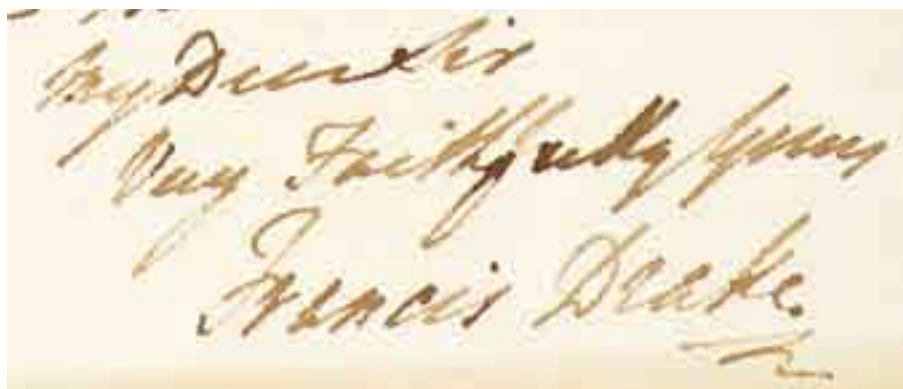 My Dear Sir
Very Faithfully Yours
Francis Drake